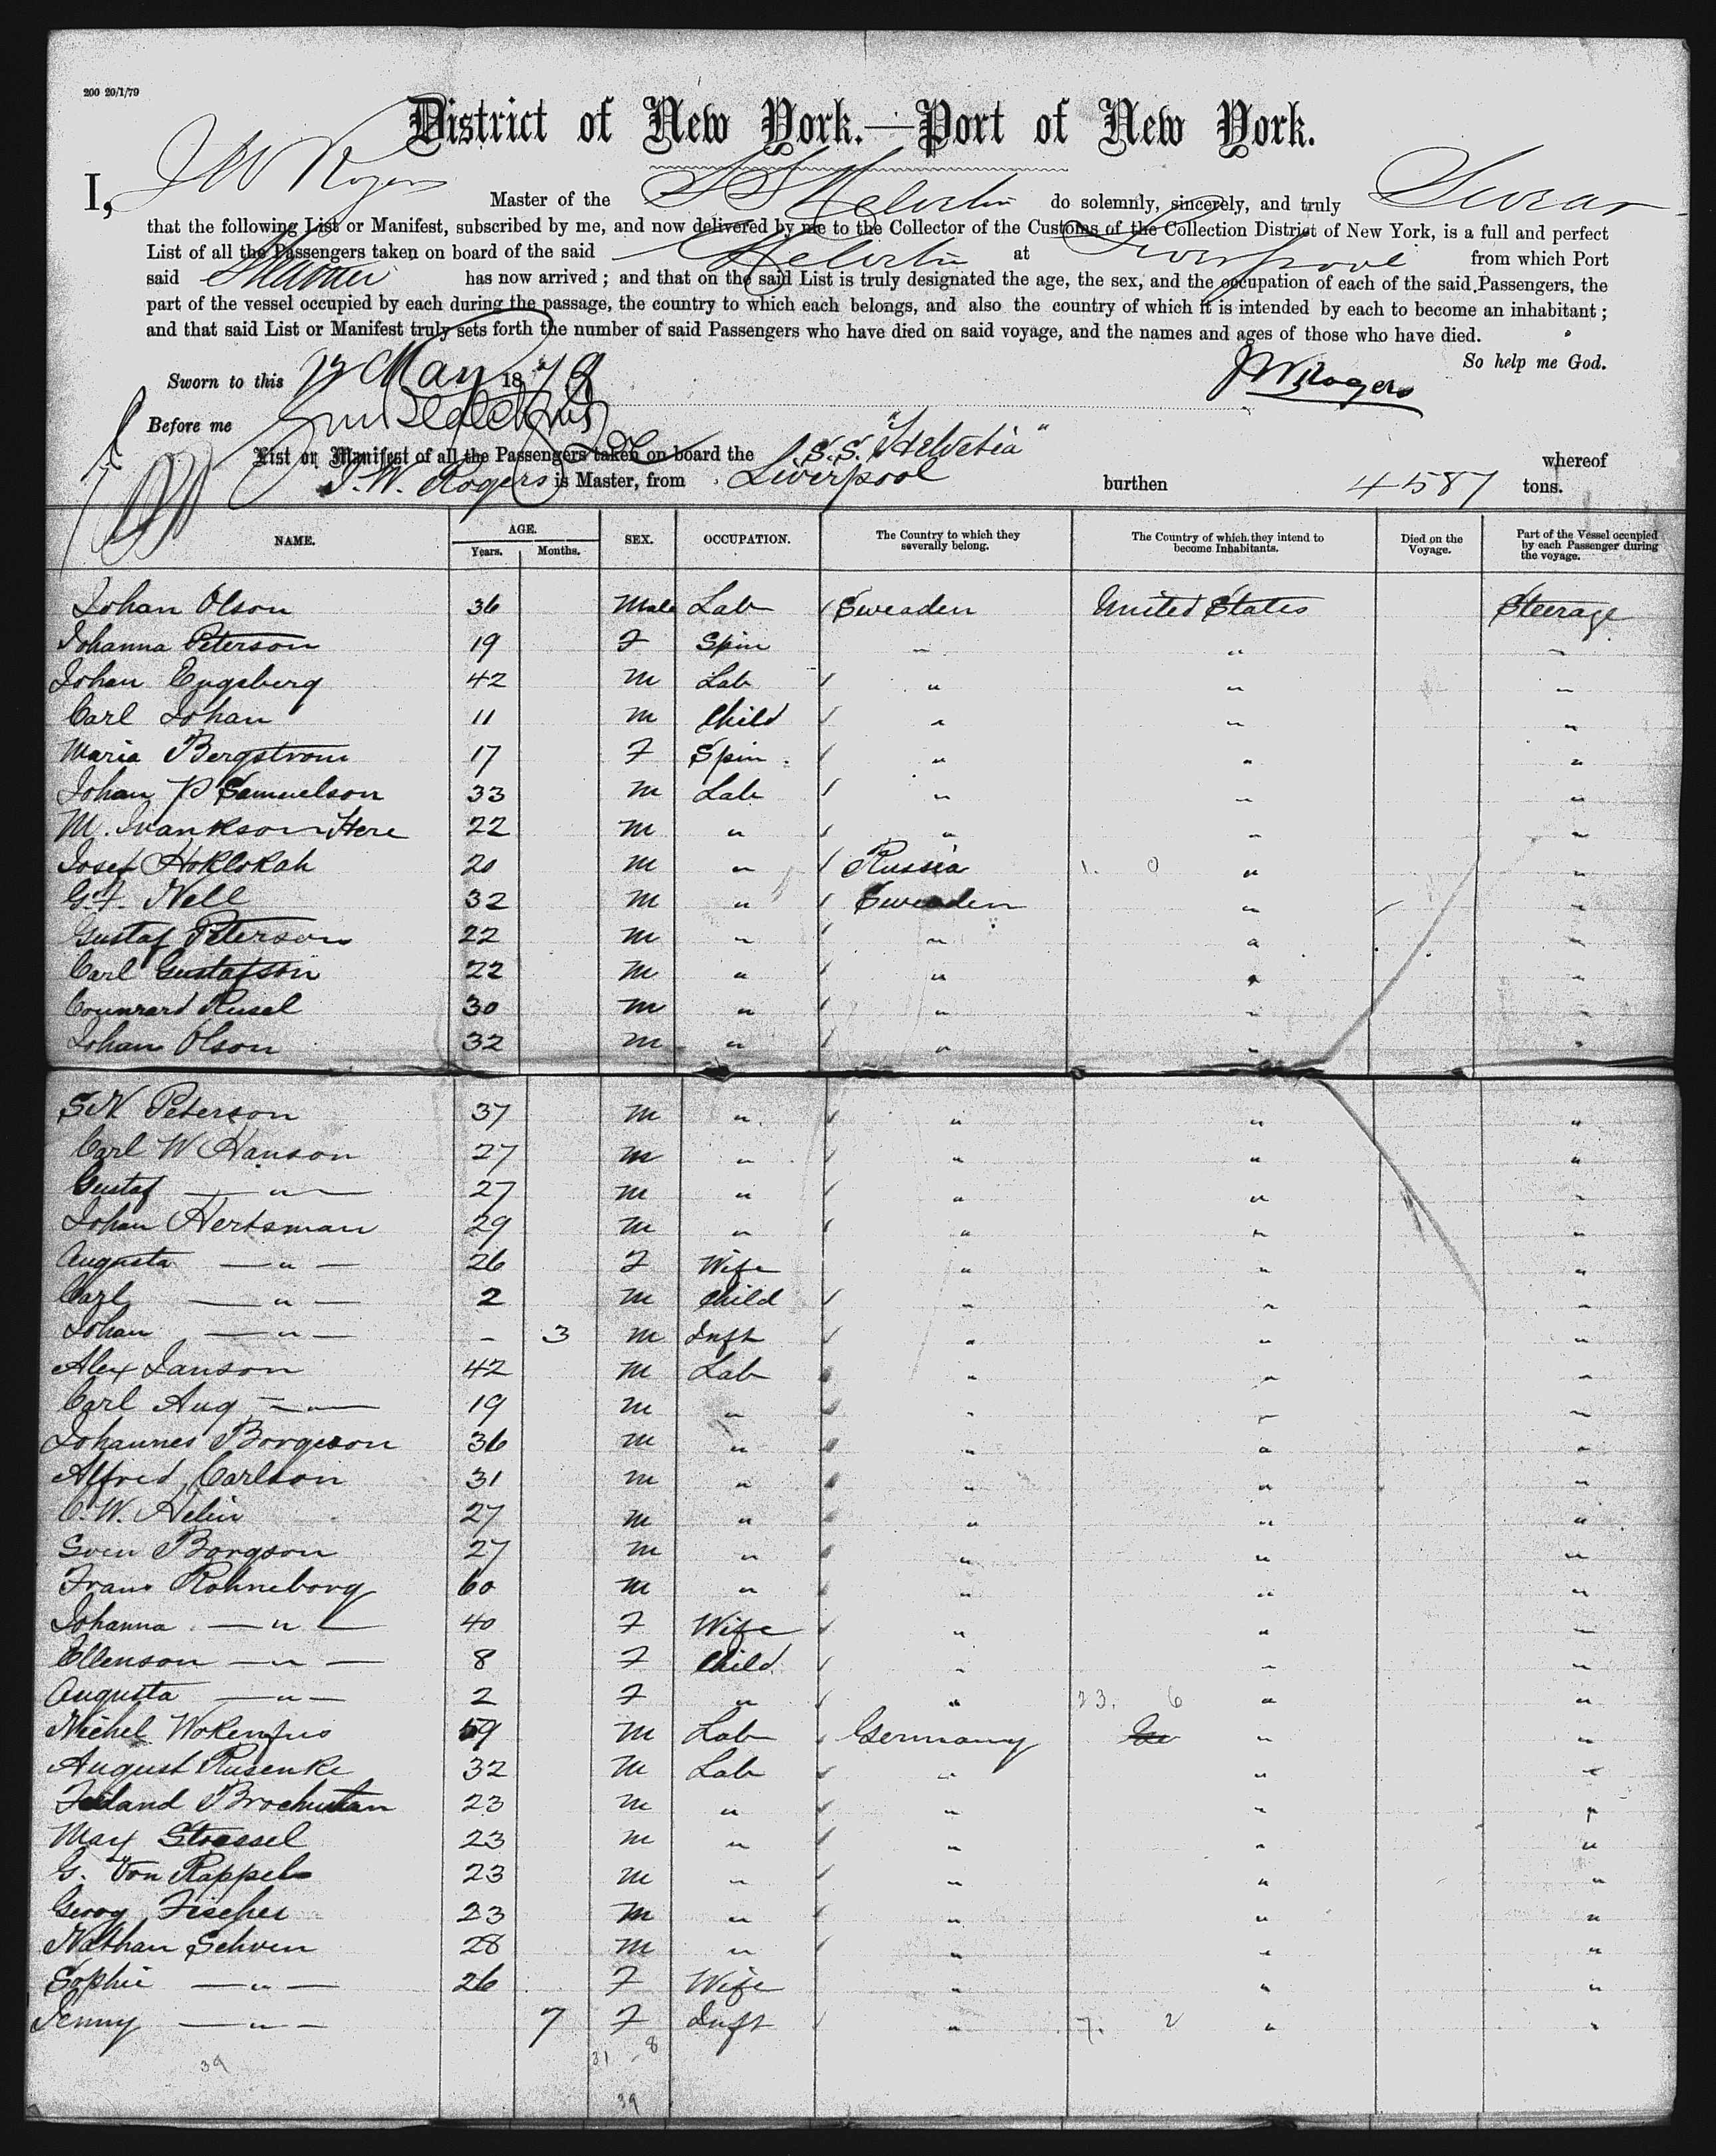 200 20/1/79
District of New York.—Port of New York.
I, J W Rogers Master of the S S Helvetia do solemnly, sincerely, and truly Swear
that the following List or Manifest, subscribed by me, and now delivered by me to the Collector of the Customs of the Collection District of New York, is a full and perfect
List of all the Passengers taken on board of the said Helvetia at Liverpool from which Port
said Steamer has now arrived; and that on the said List is truly designated the age, the sex, and the occupation of each of the said Passengers, the
part of the vessel occupied by each during the passage, the country to which each belongs, and also the country of which it is intended by each to become an inhabitant;
and that said List or Manifest truly sets forth the number of said Passengers who have died on said voyage, and the names and ages of those who have died.
So help me God.
Sworn to this May 1879 J W Rogers
Before me
List or Manifest of all the Passengers taken on board the S.S. "Helvetia" whereof
J. W. Rogers is Master, from Liverpool burthen 4587 tons.
NAME. AGE. Years. Months. SEX. OCCUPATION. The Country to which they severally belong. The Country of which they intend to become Inhabitants. Died on the Voyage. Part of the Vessel occupied by each Passenger during the voyage.
Johan Olson 36 Male Lab Sweaden United States Steerage
Johanna Peterson 19 F Spin " " "
Johan Engsberg 42 M Lab " " "
Carl Johan 11 M Child " " "
Maria Bergstrom 17 F Spin " " "
Johan P Samuelson 33 M Lab " " "
M. Here 22 M " " " "
Josef Hoklokah 20 M " Russia 1. 0 " "
G. F. Nell 32 M " Sweaden " "
Gustaf Peterson 22 M " " " "
Carl Gustafson 22 M " " " "
Counrard Rusel 30 M " " " "
Johan Olson 32 M " " " "
S N Peterson 37 M " " " "
Carl W Hanson 27 M " " " "
Gustaf — " — 27 M " " " "
Johan Hertsman 29 M " " " "
Augusta — " — 26 F Wife " " "
Carl — " — 2 M Child " " "
Johan — " — - 3 M Inft " " "
Alex Janson 42 M Lab " " "
Carl Aug — " — 19 M " " " "
Johannes Borgeson 36 M " " " "
Alfred Carlson 31 M " " " "
C. W. Helin 27 M " " " "
Sven Borgson 27 M " " " "
Frans Rohneborg 60 M " " " "
Johanna — " — 40 F Wife " " "
Ellenson — " — 8 F Child " " "
Augusta — " — 2 F " " 23. 6 " "
Michel Wokenfus 59 M Lab Germany " "
August Rusenke 32 M Lab " " "
23 M " " " "
Max Stoessel 23 M " " " "
G. Von Rappels 23 M " " " "
Georg Fischer 23 M " " " "
Nathan Schven 28 M " " " "
Sophie — " — 26 F Wife " " "
Jenny — " — 7 F Inft " 7. 2 " "
31 - 8
39
39